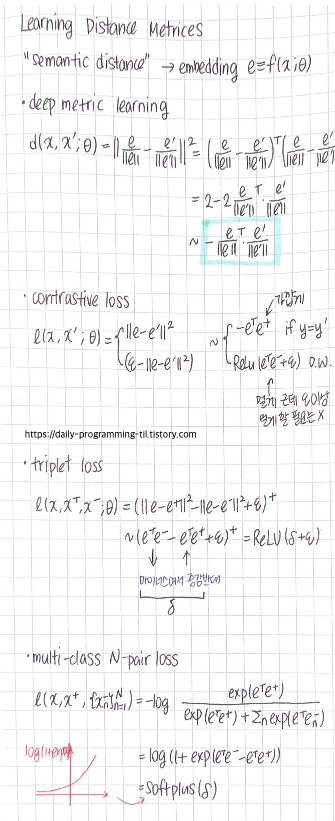 Learning Distance Metrices
"semantic distance" → embedding e=f(x;θ)
· deep metric learning
d(x, x'; θ) = ||e/||e|| - e'/||e'||||² = (e/||e|| - e'/||e'||)ᵀ(e/||e|| - e'/||e'||
= 2-2 eᵀ/||e|| · e'/||e'||
~ - eᵀ/||e|| · e'/||e'||
· contrastive loss
가깝게
l(x, x'; θ) = { ||e-e'||² ~ { -eᵀe⁺ if y=y'
(ε-||e-e'||²) Relu(eᵀe⁻+ε) o.w.
멀게 근데 ε이상
멀게 할 필요는 X
https://daily-programming-til.tistory.com
· triplet loss
l(x, x⁺, x⁻; θ) = (||e-e⁺||²-||e-e⁻||²+ε)⁺
~ (eᵀe⁻ - eᵀe⁺+ε)⁺ = ReLU(δ+ε)
마이너스여서 증감반대
δ
· multi-class N-pair loss
l(x, x⁺, {xₙ⁻}ᴺₙ₌₁) = -log exp(eᵀe⁺) / exp(eᵀe⁺) + Σₙexp(eᵀeₙ⁻)
= log(1+ exp(eᵀe⁻-eᵀe⁺))
= softplus(δ)